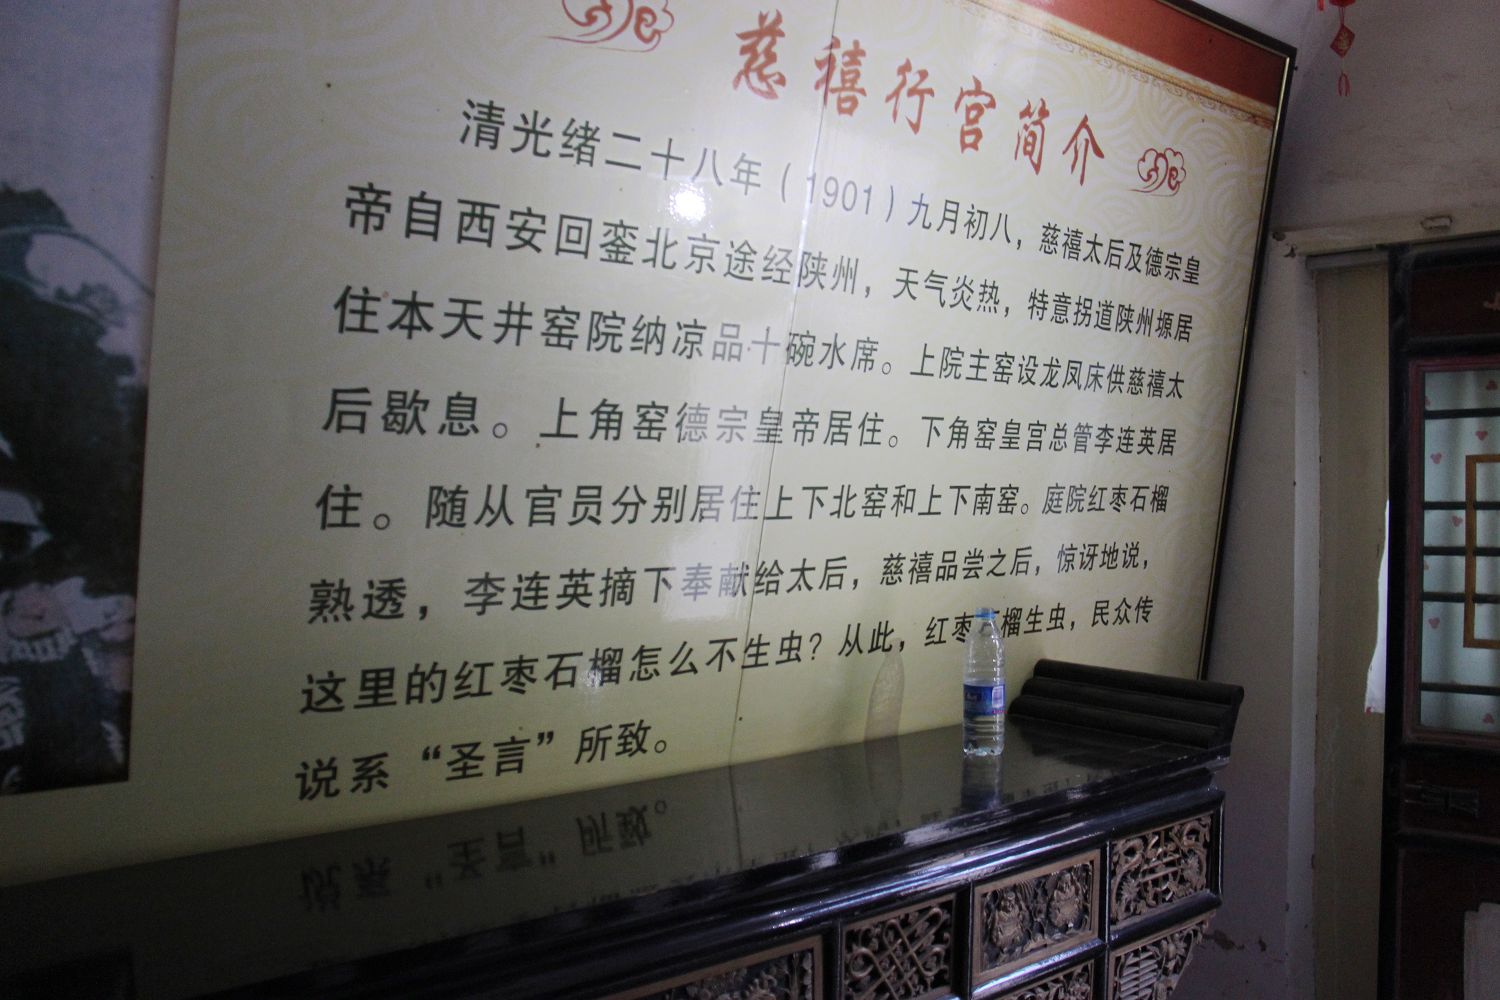 慈禧行宫简介
清光绪二十八年（1901）九月初八，慈禧太后及德宗皇
帝自西安回銮北京途经陕州，天气炎热，特意拐道陕州塬居
住本天井窑院纳凉品十碗水席。上院主窑设龙凤床供慈禧太
后歇息。上角窑德宗皇帝居住。下角窑皇宫总管李连英居
住。随从官员分别居住上下北窑和上下南窑。庭院红枣石榴
熟透，李连英摘下奉献给太后，慈禧品尝之后，惊讶地说，
这里的红枣石榴怎么不生虫？从此，红枣石榴生虫，民众传
说系“圣言”所致。